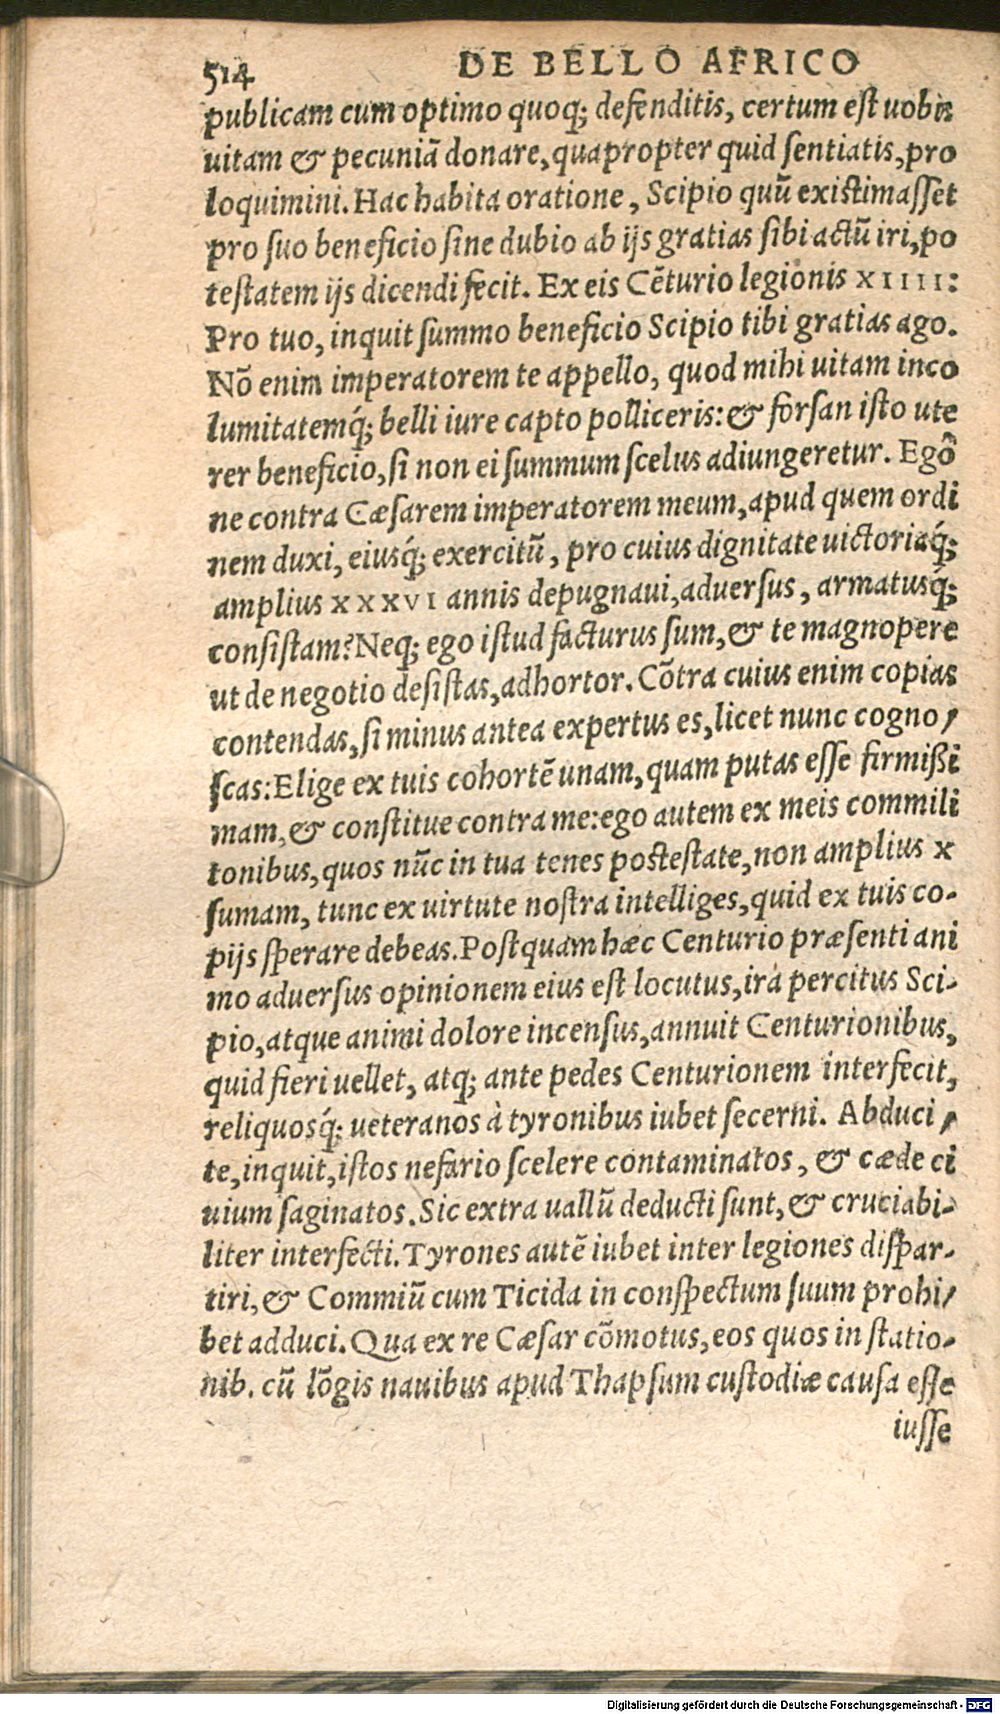 514 DE BELLO AFRICO
publicam cum optimo quoq; defenditis, certum est uobis
uitam & pecuniā donare, quapropter quid sentiatis, pro
loquimini. Hac habita oratione, Scipio quū existimasset
pro suo beneficio sine dubio ab ijs gratias sibi actū iri, po
testatem ijs dicendi fecit. Ex eis Cēturio legionis XIIII:
Pro tuo, inquit summo beneficio Scipio tibi gratias ago.
Nō enim imperatorem te appello, quod mihi uitam inco
lumitatemq́; belli iure capto polliceris: & forsan isto ute
rer beneficio, si non ei summum scelus adiungeretur. Egō
ne contra Cæsarem imperatorem meum, apud quem ordi
nem duxi, eiusq́; exercitū, pro cuius dignitate uictoriaq́;
amplius XXXVI annis depugnaui, aduersus, armatusq́;
consistam? Neq; ego istud facturus sum, & te magnopere
ut de negotio desistas, adhortor. Cōtra cuius enim copias
contendas, si minus antea expertus es, licet nunc cogno/
scas: Elige ex tuis cohortē unam, quam putas esse firmißi
mam, & constitue contra me: ego autem ex meis commili
tonibus, quos nūc in tua tenes postestate, non amplius X
sumam, tunc ex uirtute nostra intelliges, quid ex tuis co-
pijs sperare debeas. Postquam hæc Centurio præsenti ani
mo aduersus opinionem eius est locutus, ira percitus Sci-
pio, atque animi dolore incensus, annuit Centurionibus,
quid fieri uellet, atq; ante pedes Centurionem interfecit,
reliquosq́; ueteranos à tyronibus iubet secerni. Abduci/
te, inquit, istos nefario scelere contaminatos, & cæde ci
uium saginatos. Sic extra uallū deducti sunt, & cruciabi-
liter interfecti. Tyrones autē iubet inter legiones dispar-
tiri, & Commiū cum Ticida in conspectum suum prohi/
bet adduci. Qua ex re Cæsar cōmotus, eos quos in statio-
nib. cū lōgis nauibus apud Thapsum custodiæ causa esse
iusse
Digitalisierung gefördert durch die Deutsche Forschungsgemeinschaft - DFG